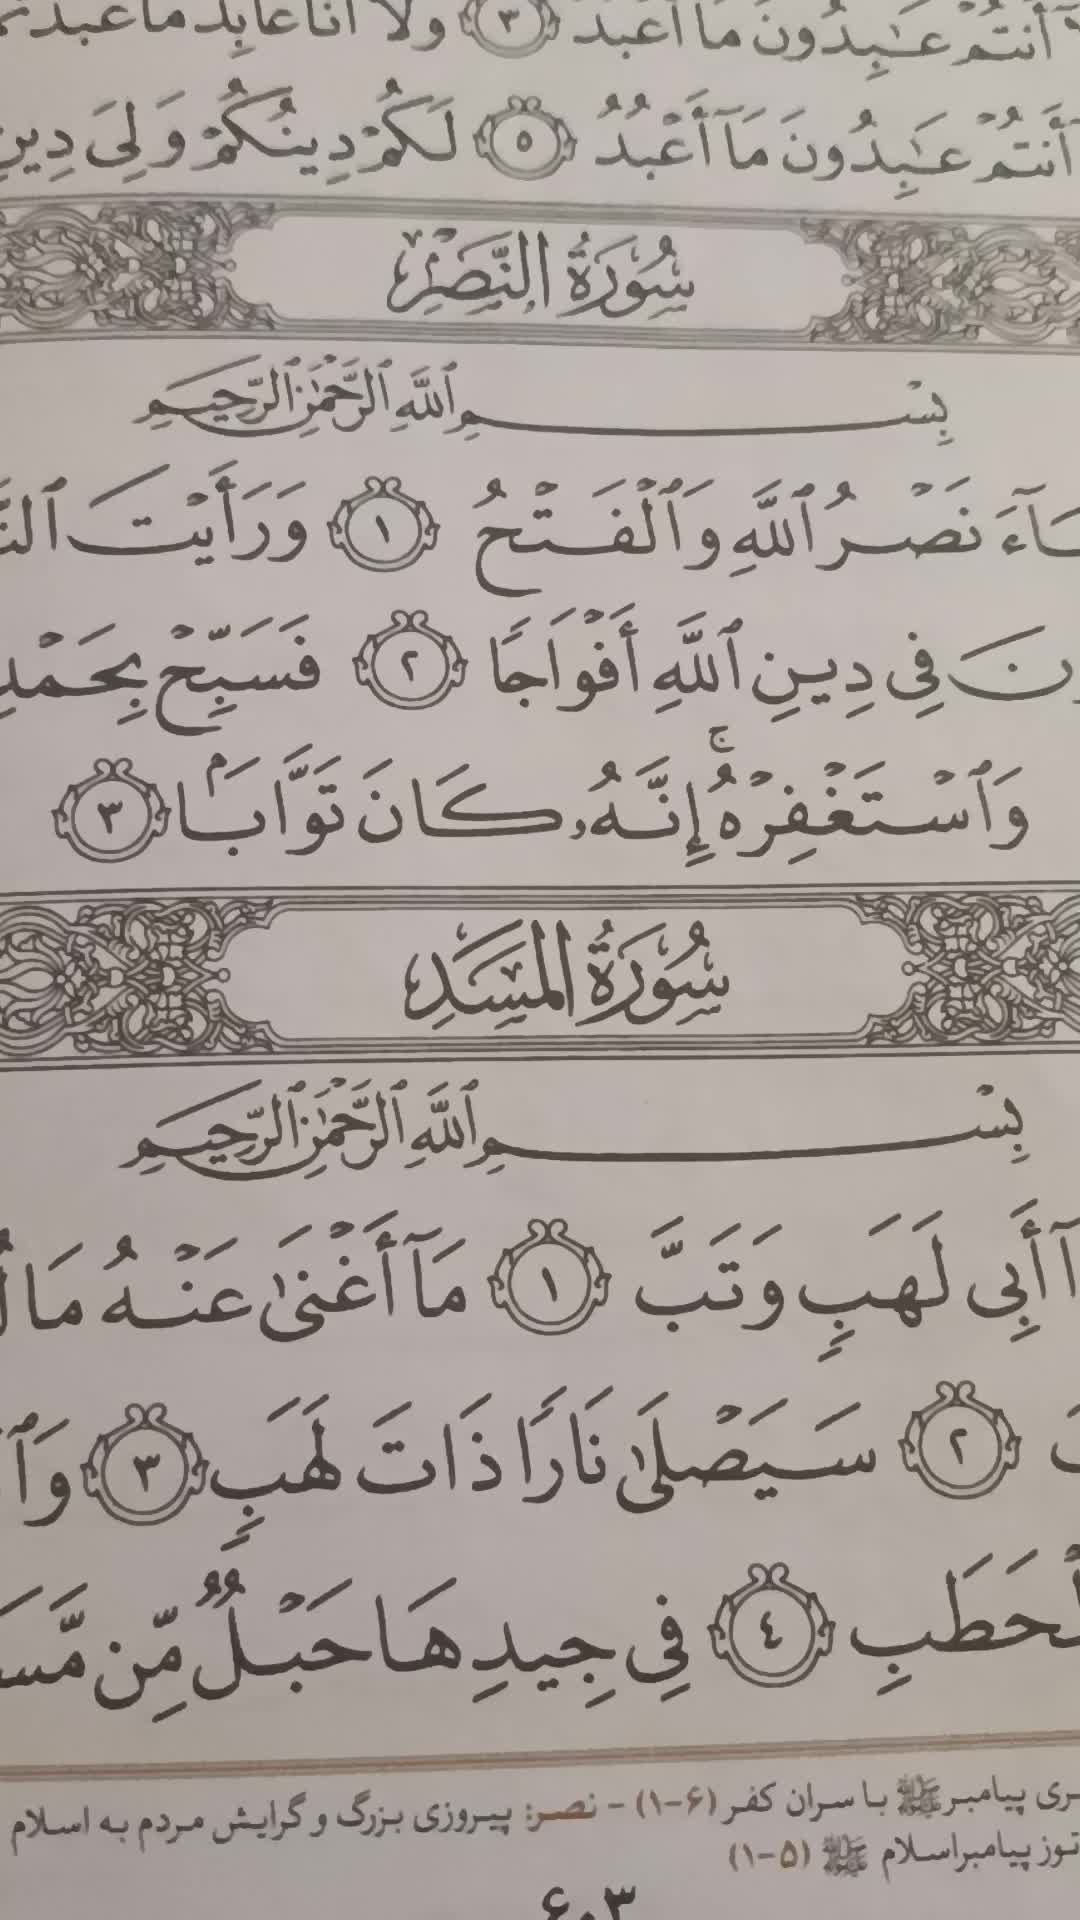 أَنتُمْ عَٰبِدُونَ مَآ أَعْبُدُ ٣ وَلَآ أَنَا۠ عَابِدٌ مَّا عَبَدتُّمْ
أَنتُمْ عَٰبِدُونَ مَآ أَعْبُدُ ٥ لَكُمْ دِينُكُمْ وَلِىَ دِينِ
سُورَةُ النَّصْرِ
بِسْمِ ٱللَّهِ ٱلرَّحْمَٰنِ ٱلرَّحِيمِ
ـَآءَ نَصْرُ ٱللَّهِ وَٱلْفَتْحُ ١ وَرَأَيْتَ ٱلنَّـ
ـونَ فِى دِينِ ٱللَّهِ أَفْوَاجًا ٢ فَسَبِّحْ بِحَمْدِ
وَٱسْتَغْفِرْهُ ۚ إِنَّهُۥ كَانَ تَوَّابَۢا ٣
سُورَةُ المَسَدِ
بِسْمِ ٱللَّهِ ٱلرَّحْمَٰنِ ٱلرَّحِيمِ
ـآ أَبِى لَهَبٍ وَتَبَّ ١ مَآ أَغْنَىٰ عَنْهُ مَالُـ
ـبَ ٢ سَيَصْلَىٰ نَارًا ذَاتَ لَهَبٍ ٣ وَٱ
ـلْحَطَبِ ٤ فِى جِيدِهَا حَبْلٌ مِّن مَّسَـ
ـری پیامبر ﷺ با سران کفر (۶-۱) - نصر: پیروزی بزرگ و گرایش مردم به اسلام
توز پیامبراسلام ﷺ (۵-۱)
۶۰۳